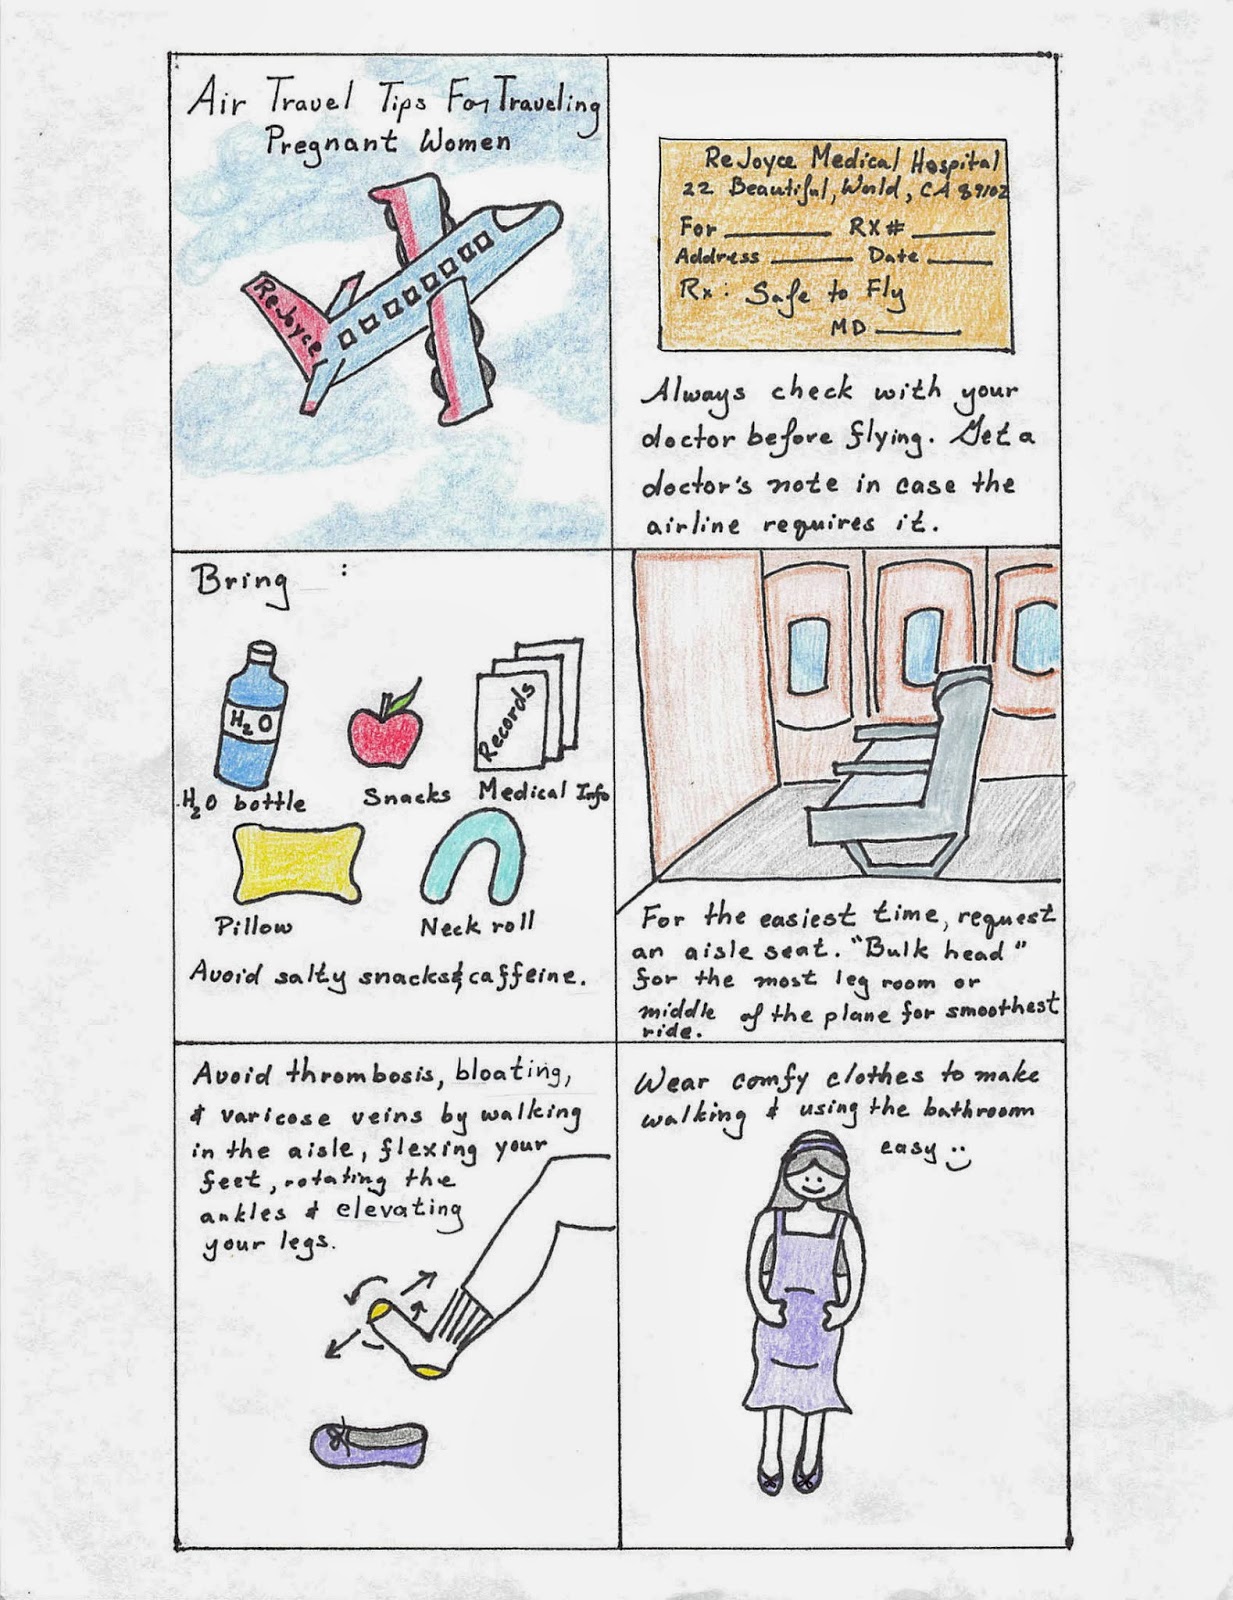 Air Travel Tips For Traveling
Pregnant Women
ReJoyce
ReJoyce Medical Hospital
22 Beautiful, World, CA 89102
For ________ RX# ______
Address ______ Date _____
Rx: Safe to Fly
MD ______
Always check with your
doctor before flying. Get a
doctor's note in case the
airline requires it.
Bring :
H2O
Records
H2O bottle Snacks Medical Info
Pillow Neck roll
Avoid salty snacks & caffeine.
For the easiest time, request
an aisle seat. "Bulk head"
for the most leg room or
middle of the plane for smoothest
ride.
Avoid thrombosis, bloating,
& varicose veins by walking
in the aisle, flexing your
feet, rotating the
ankles & elevating
your legs.
Wear comfy clothes to make
walking & using the bathroom
easy :)